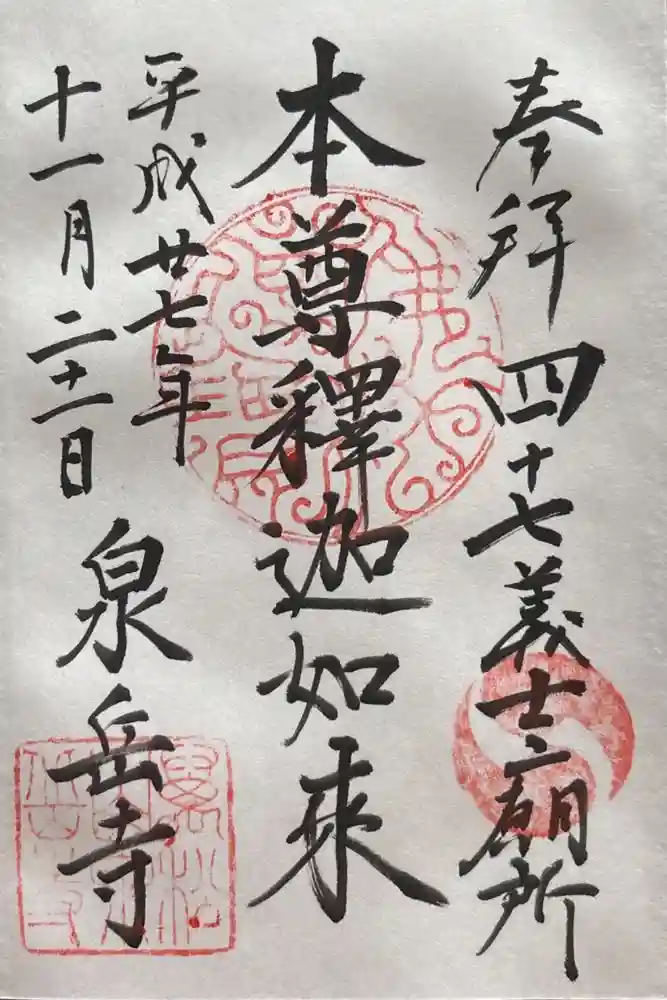 奉拜 四十七義士廟所
本尊釋迦如来
平成廿七年
十一月二十一日
泉岳寺